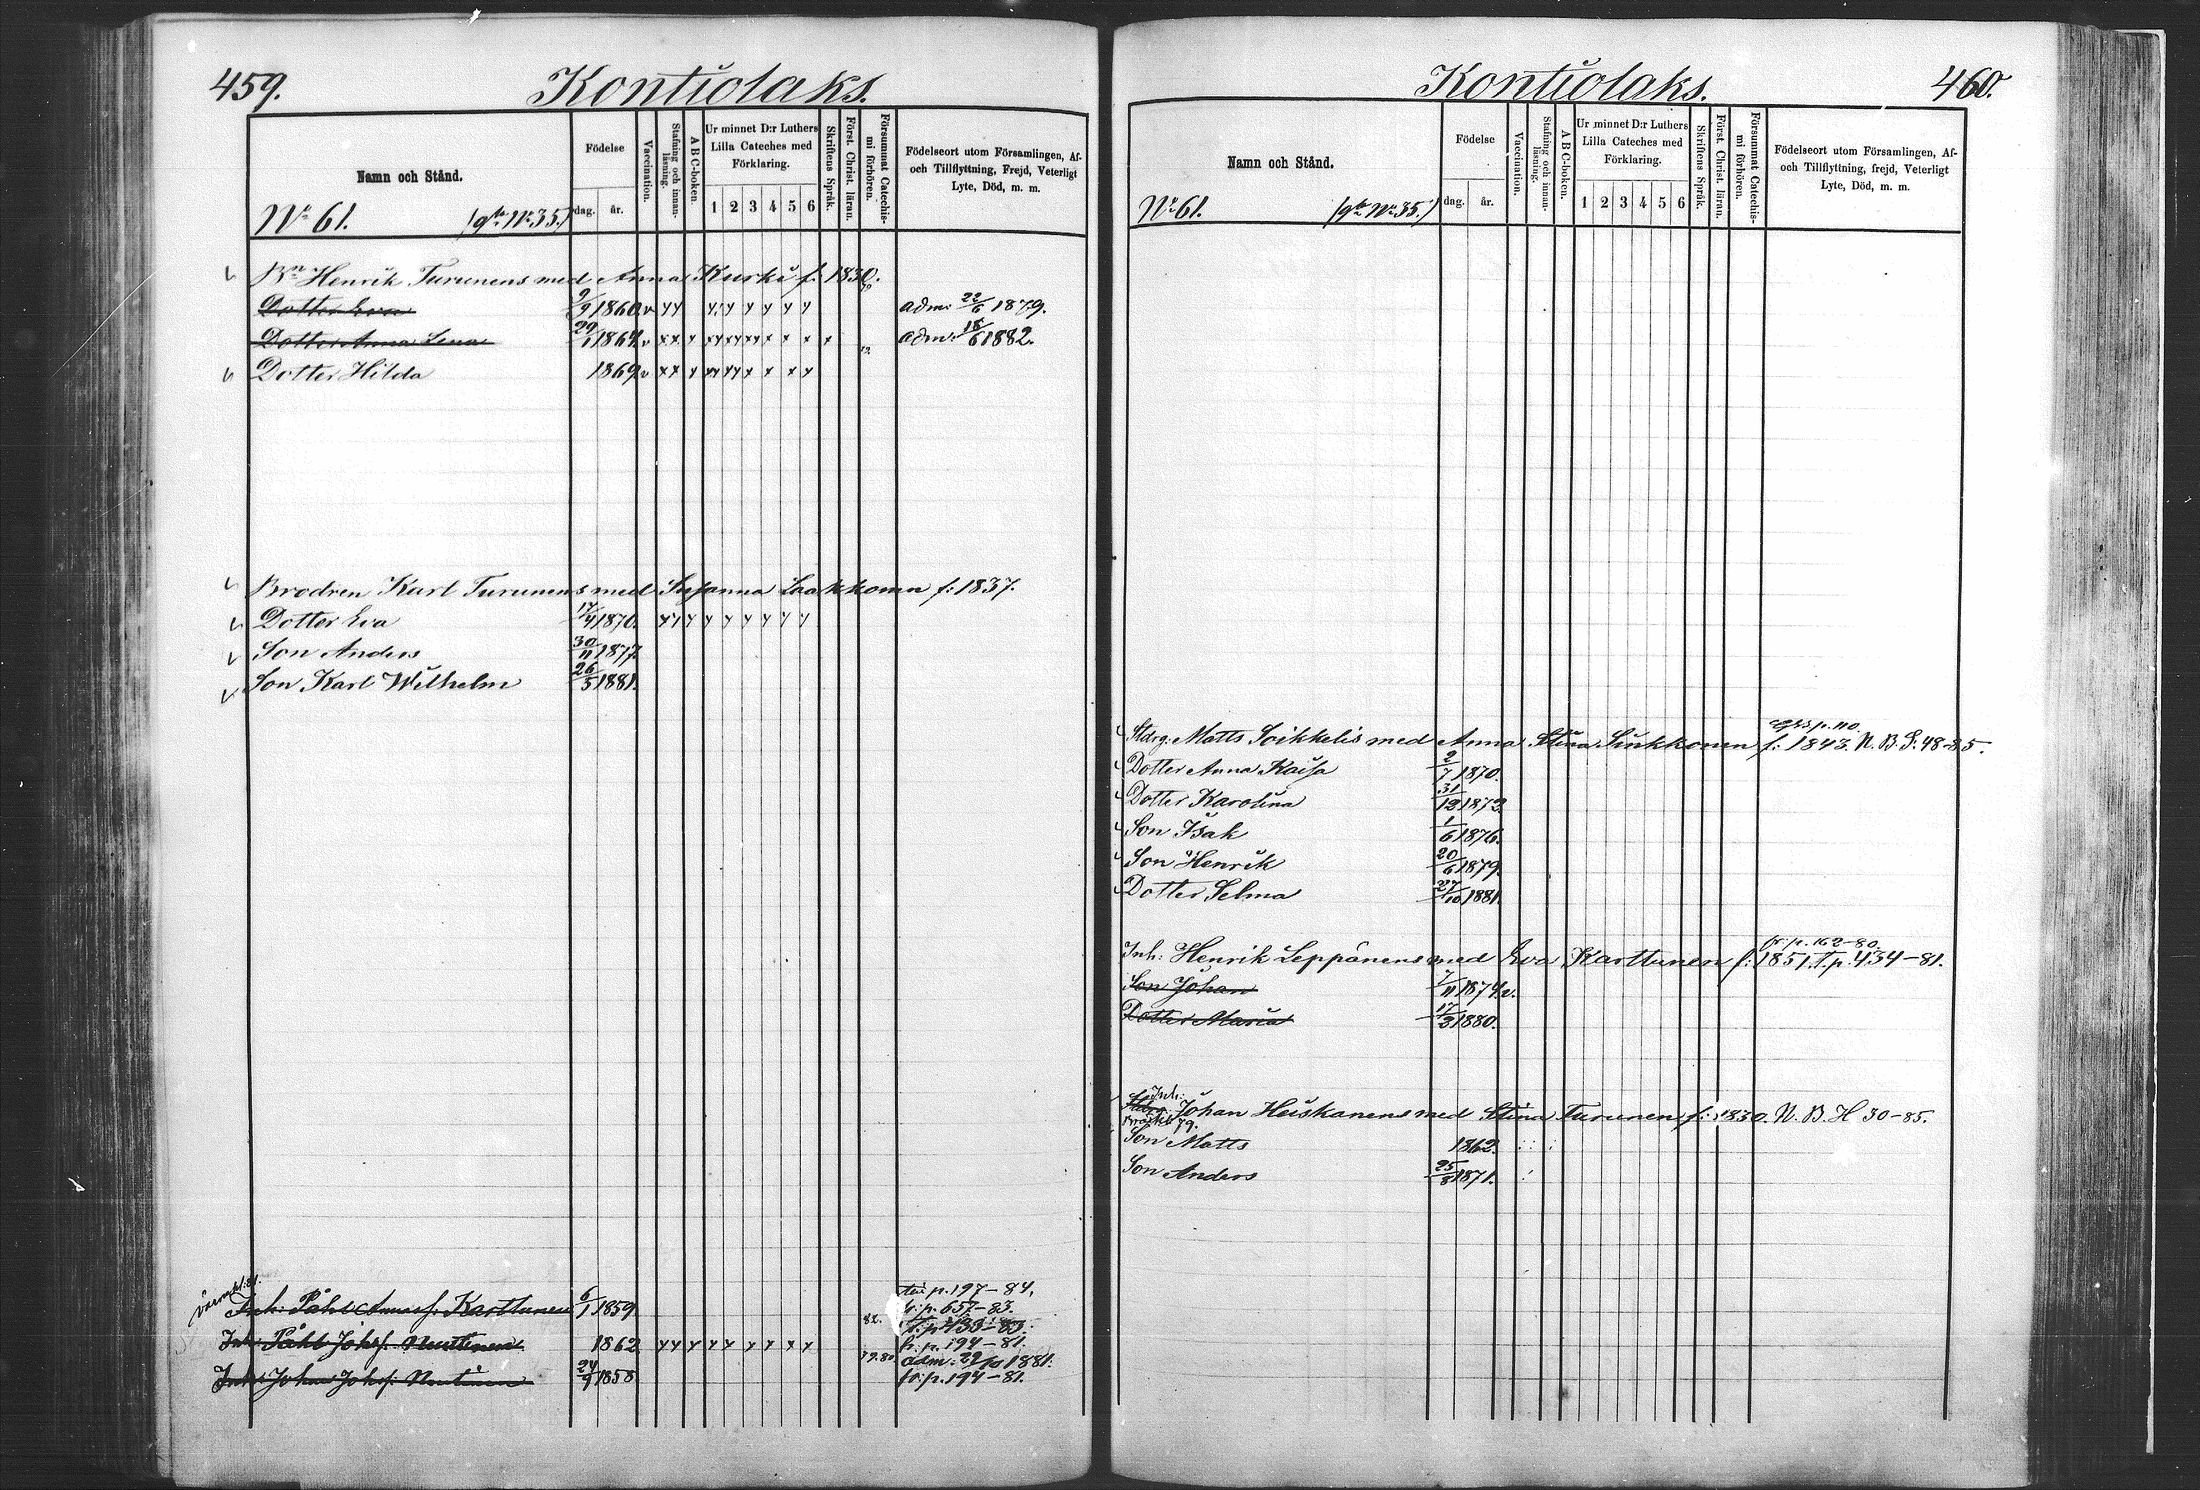 459.
Kontiolaks.
Namn och Stånd.
Födelse
dag.
år.
Vaccination.
Stafning och innanläsning.
ABC-boken.
Ur minnet D:r Luthers
Lilla Cateches med
Förklaring.
1 2 3 4 5 6
Skriftens Språk.
Först. Christ. läran.
Försummat Catechismi förhören.
Födelseort utom Församlingen, Af-
och Tillflyttning, Frejd, Veterligt
Lyte, Död, m. m.
No 61. (gla No 35.)
Bn Henrik Turunens med Anna Kurki f: 1830.
Dotter Eva 9/9 1860. v adm: 22/6 1879.
Dotter Anna Lena 29/1 1864. v adm: 18/6 1882.
Dotter Hilda 1869. v
Brodren Karl Turunens med Susanna Laakkonen f: 1837.
Dotter Eva 17/4 1870.
Son Anders 30/11 1877.
Son Karl Wilhelm 26/5 1881.
Inh: Påhl Karttunen 6/1 1859. 82. till p. 197-84.
fr: p. 657-83.
t: p 433-83.
Inh: Påhl Johsf. Nuutinen 1862. fr. p. 194-81.
79.80. adm: 29/10 1881.
Inh: Johan Johsf. Nuutinen 24/9 1858. fr: p. 194-81.
460.
Kontiolaks.
Namn och Stånd.
Födelse
dag.
år.
Vaccination.
Stafning och innanläsning.
ABC-boken.
Ur minnet D:r Luthers
Lilla Cateches med
Förklaring.
1 2 3 4 5 6
Skriftens Språk.
Först. Christ. läran.
Försummat Catechismi förhören.
Födelseort utom Församlingen, Af-
och Tillflyttning, frejd, Veterligt
Lyte, Död, m. m.
No 61. (gla No 35.)
p. 110.
Stdrg. Matts Soikkelis med Anna Stina Sinkkonen f: 1843. N. B. S. 48-85.
Dotter Anna Kaisa 2/7 1870.
Dotter Karolina 31/12 1872.
Son Isak 1/6 1876.
Son Henrik 20/6 1879.
Dotter Selma 27/10 1881.
fr: p. 162-80.
Inh: Henrik Leppänens med Eva Karttunen f: 1851. t. p. 434-81.
Son Johan 7/11 1874. v.
Dotter Maria 17/3 1880.
Inh:
Stdrg. Johan Heiskanens med Stina Turunen f: 1830. N. B. H 30-85.
79.
Son Matts 1862.
Son Anders 25/8 1871.